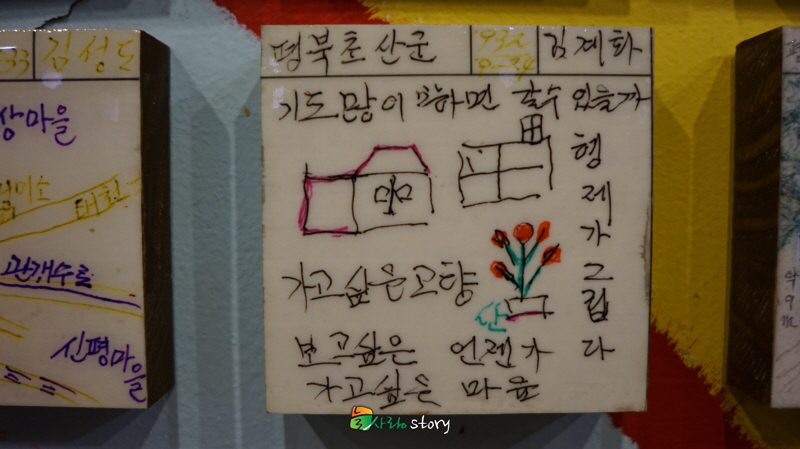 김성도
상마을
관개수로
신평마을
평북초산군
김계화
기도 많이 하면 갈수 있을까
형제가그립다
가고싶은고향
산
보고싶은 언젠가
가고싶은 마을
사랑 story